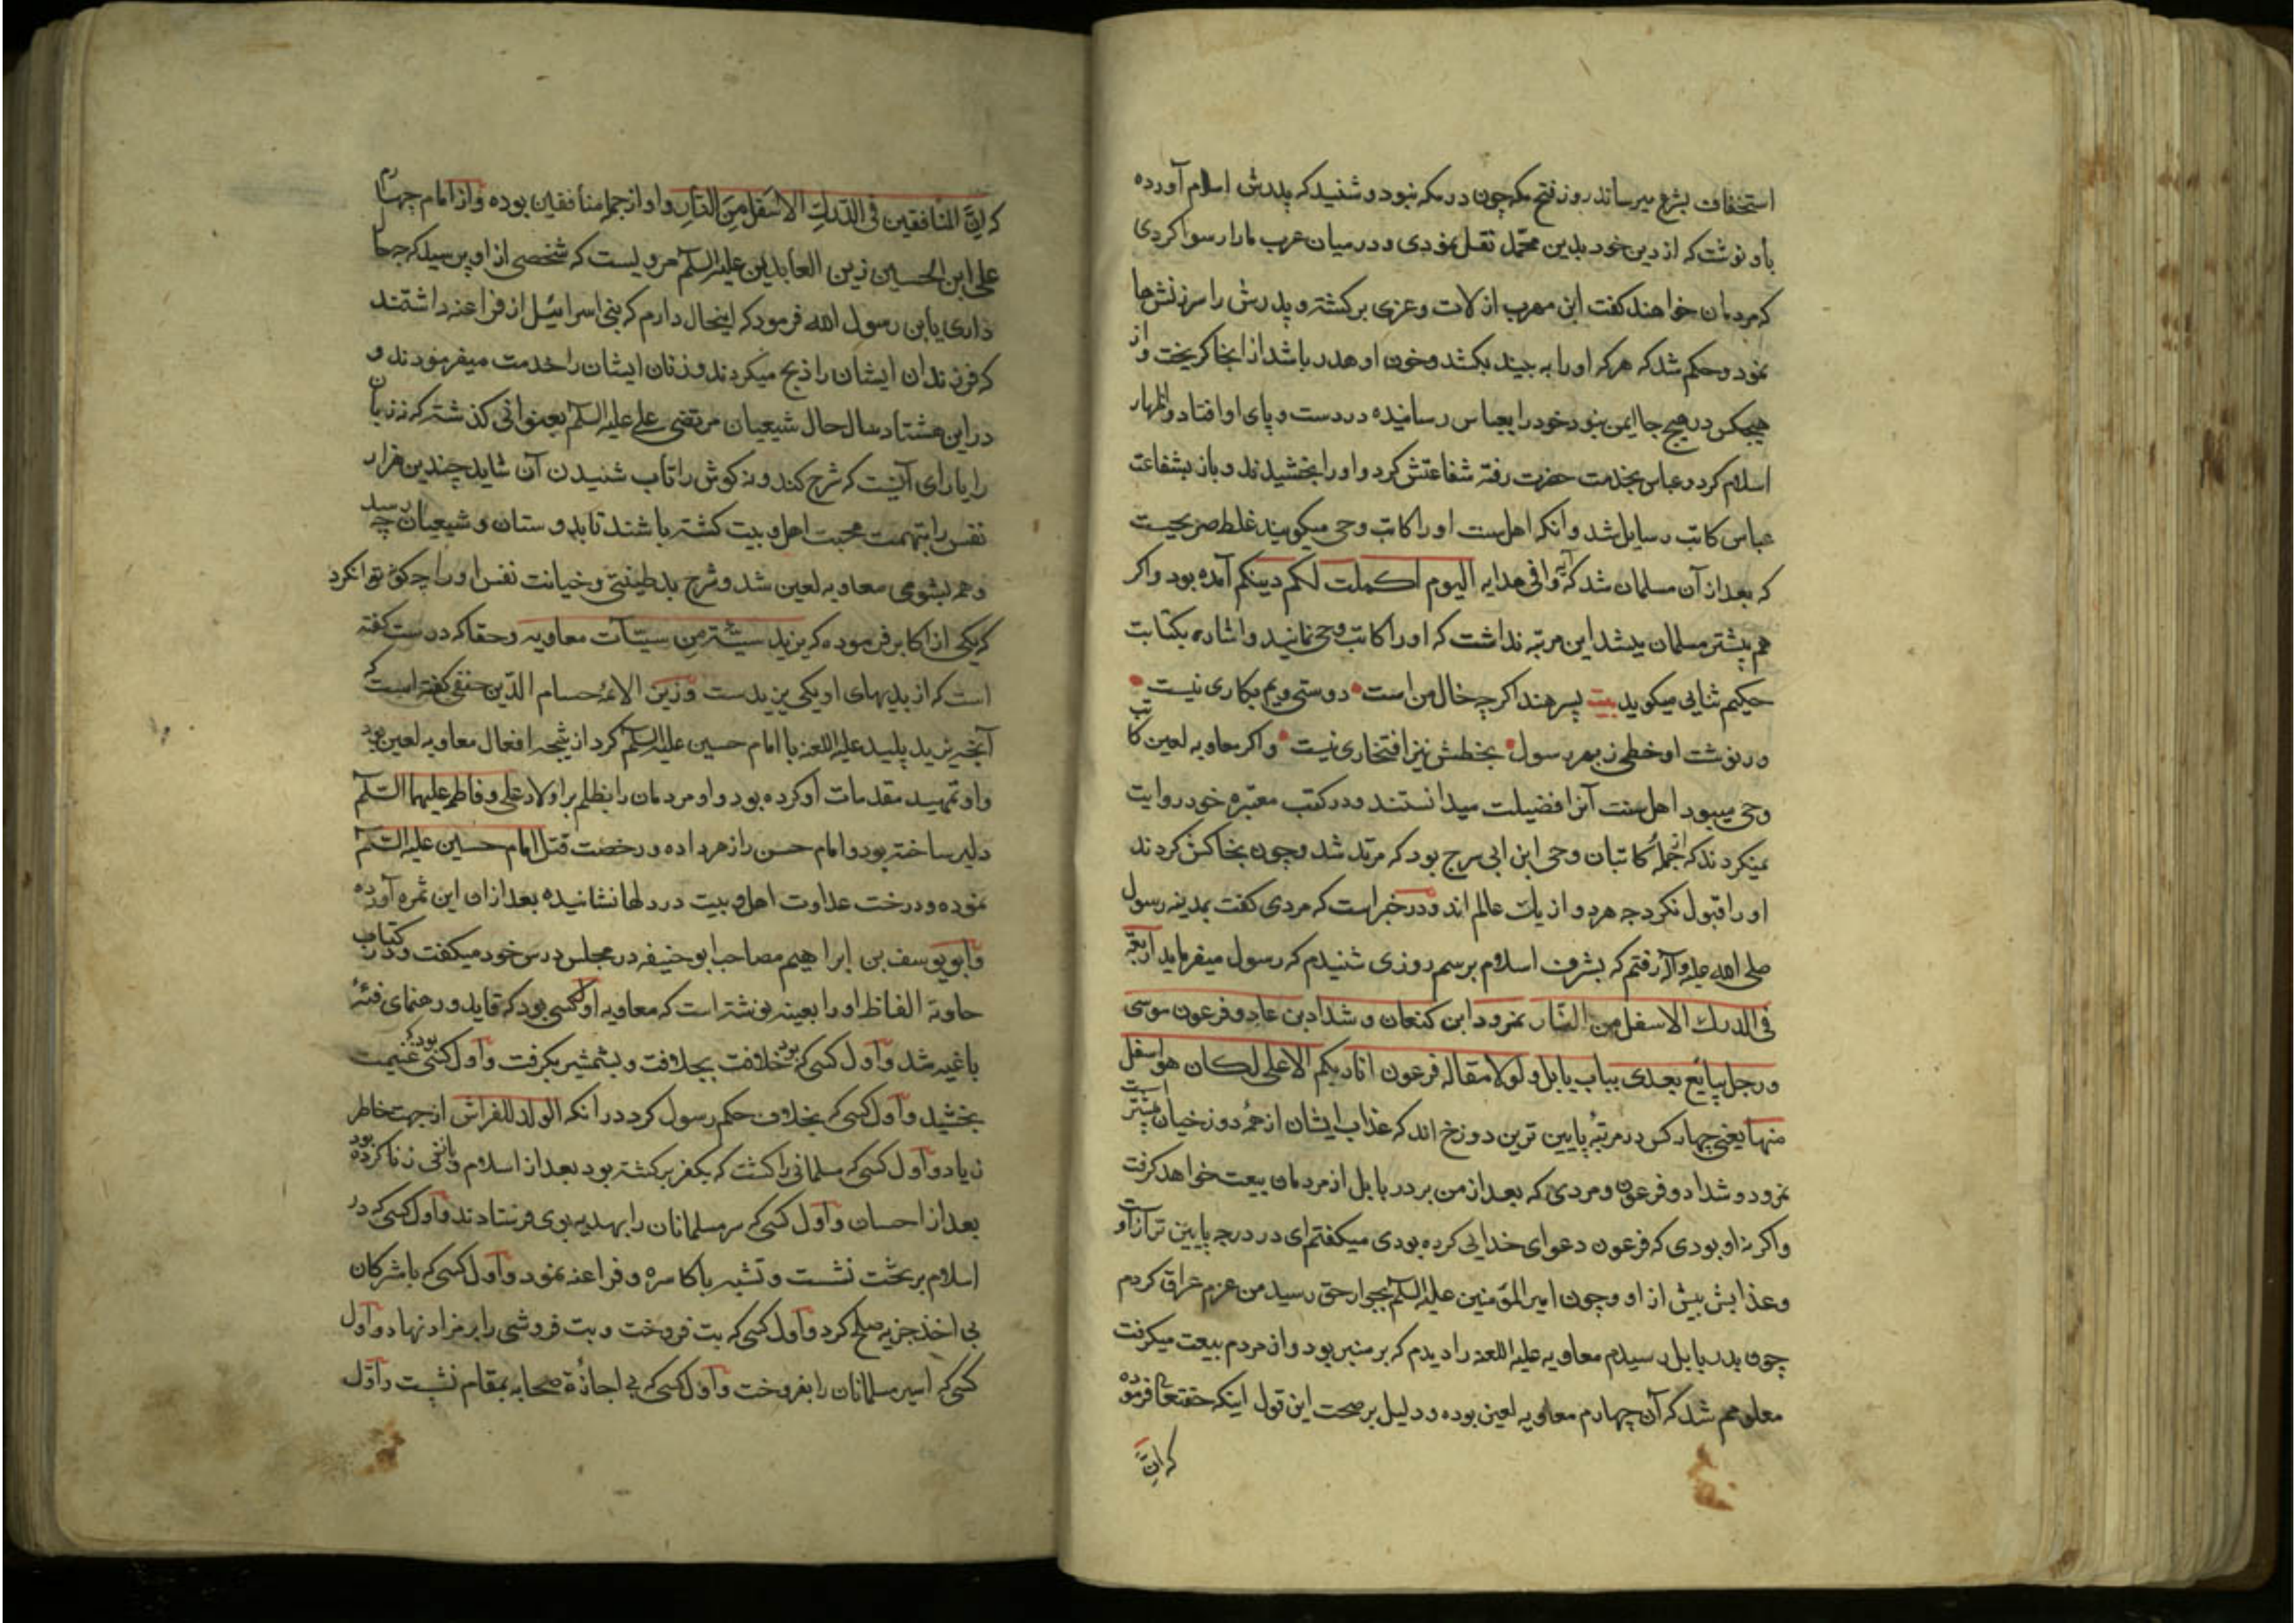 استخفاف بشرع میرساند روز فتح مکه چون در مکه نبود و شنید که پدرش اسلام آورده
باو نوشت که از دین خود بدین محمّد نقل نمودی و در میان عرب مارا رسوا کردی
که مردمان خواهند کفت ابن حرب از لات و عزی برکشته و پدرش را سرزنشها
نمود و حکم شد که هر که او را به بیند بکشد و خون او هدر باشد از انجا کریخت و از
هیچکس در هیچ جا ایمن نبود خود را بعباس رسانیده در دست و پای او افتاد و اظهار
اسلام کرد و عباس بخدمت حضرت رفته شفاعتش کرد و او را بخشیدند و باز بشفاعت
عباس کاتب رسایل شد و انکه اهل سنت او را کاتب وحی میکویند غلط صریحست
که بعد از آن مسلمان شد که آیه وافی هدایه الیوم اکملت لکم دینکم آمده بود و اکر
هم پیشتر مسلمان میشد این مرتبه نداشت که او را کاتب وحی نمایند و اشاره بکتابت
حکیم ثنایی میکوید بیت پسر هند اکر چه خال من است دوستی ویم بکاری نیست
ور نوشت او خطی ز بهر رسول بخطش نیز افتخاری نیست و اکر معاویه لعین کاتب
وحی میبود اهل سنت آنرا فضیلت میدانستند و در کتب معتبره خود روایت
نمیکردند که از جملهٔ کاتبان وحی ابن ابی سرح بود که مرتد شد و چون بخاکش کردند
او را قبول نکرد چه هر دو از یک عالم اند و در خبر است که مردی کفت بمدینه رسول
صلی الله علیه وآله رفتم که بشرف اسلام برسم روزی شنیدم که رسول میفرماید اربعة
فی الدرک الاسفل من النّار نمرود ابن کنعان و شداد بن عاد و فرعون موسی
ورجل یبایع بعدی بباب بابل و لولا مقاله فرعون انا ربکم الاعلی لکان هو اسفل
منهما یعنی چهار کس در مرتبهٔ پایین ترین دوزخ اند که عذاب ایشان از همهٔ دوزخیان بیشتر است
نمرود و شداد و فرعون و مردی که بعد از من بر در بابل از مردمان بیعت خواهد کرفت
واکر نه او بودی که فرعون دعوای خدایی کرده بودی میکفتم ای در درجه پایین تر از آنست
وعذابش بیش از او و چون امیر المؤمنین علیه السلم بجوار حق رسید من عزم عراق کردم
چون بدر بابل رسیدم معاویه علیه اللعنه را دیدم که بر منبر بود و از مردم بیعت میکرفت
معلومم شد که آن چهارم معاویه لعین بوده و دلیل بر صحت این قول اینکه حقتعالی فرموده
که اِنَّ
که اِنَّ المنافقین فی الدّرک الاسفل من النّار و او از جمله منافقین بوده و از امام چهارم
علی ابن الحسین زین العابدین علیه السلم مرویست که شخصی از او پرسید که چه حال
داری یابن رسول الله فرمود که اینحال دارم که بنی اسرائیل از فراعنه داشتند
که فرزندان ایشان را ذبح میکردند و زنان ایشان را خدمت میفرمودند و
در این هشتاد سال حال شیعیان مرتضی علی علیه السلم بعنوانی کذشته که نه زبان
را یارای آنست که شرح کند و نه کوش را تاب شنیدن آن شاید چندین هزار
نفس را بتهمت محبت اهل بیت کشته باشند تا بدوستان و شیعیان چه رسد
و همه بشومی معاویه لعین شد و شرح بدطینتی و خیانت نفس او را چه کونه توان کرد
که یکی از اکابر فرموده که یزید سیّئة من سیّئات معاویه و حقا که درست کفته
است که از بدیهای او یکی یزیدست و زین الائمه حسام الدّین حنفی کفته است که
آنچه یزید پلید علیه اللعنه با امام حسین علیه السلم کرد از نتیجه افعال معاویه لعین بود
و او تمهید مقدمات او کرده بود و او مردمان را بظلم بر اولاد علی و فاطمه علیهما السّلم
دلیر ساخته بود و امام حسن را زهر داده و رخصت قتل امام حسین علیه السّلم
نموده و درخت عداوت اهل بیت در دلها نشانیده بعد از ان این ثمره آورده
و ابو یوسف بن ابراهیم مصاحب ابو حنیفه در مجلس درس خود میکفت و در کتاب
حاویه الفاظ او را بعینه نوشته است که معاویه اول کسی بود که قاید و رهنمای فئهٔ
باغیه شد و اول کسی بود که خلافت بخلافت و بشمشیر بکرفت و اول کسی بود که غنیمت
بخشید و اول کسی که بخلاف حکم رسول کرد در انکه الولد للفراش از جهت خاطر
زیاد و اول کسی که مسلمانی را کشت که بکفر برکشته بود بعد از اسلام و یا نفی زنا کرده بود
بعد از احسان و اول کسی که سر مسلمانان را بهدیه بوی فرستادند و اول کسی که در
اسلام بر تخت نشست و تشبه باکاسره و فراعنه نمود و اول کسی که با مشرکان
بی اخذ جزیه صلح کرد و اول کسی که بت فروخت و بت فروشی را بر مراد نهاد و اول
کسی که اسیر مسلمانان را بفروخت و اول کسی که بی اجازهٔ صحابه بمقام نشست و اول